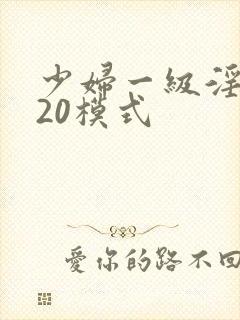 少婦一級淫
20模式
愛你的路不回